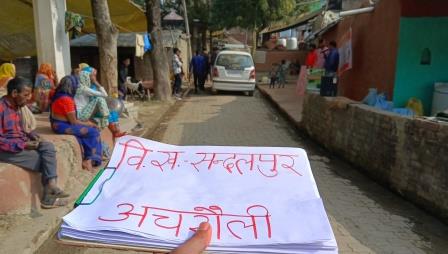 वि.ख.-सन्दलपुर
अचरौली